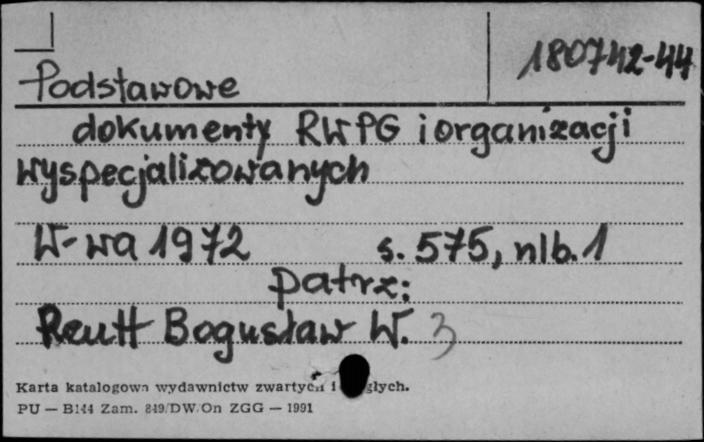 180742-44
Podstawowe
dokumenty RWPG i organizacji
wyspecjalizowanych
W-wa 1972 s. 575, nlb. 1
patrz:
Reutt Bogusław W. 3
Karta katalogowa wydawnictw zwartych i
PU — B144 Zam. 849/DW/On ZGG — 1991